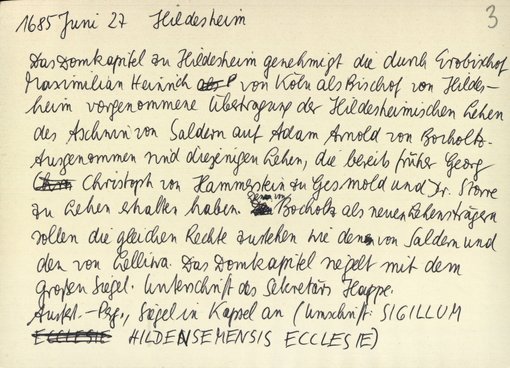 1685 Juni 27 Hildesheim 3
Das Domkapitel zu Hildesheim genehmigt die durch Erzbischof
Maximilian Heinrich von Köln als Bischof von Hildes-
heim vorgenommene Übertragung der Hildesheimischen Lehen
des Aschwin von Saldern auf Adam Arnold von Bocholtz.
Ausgenommen sind diejenigen Lehen, die bereits früher Georg
Christoph von Hammerstein zu Gesmold und Dr. Storre
zu Lehen erhalten haben. Denen von Bocholtz als neuen Lehensträgern
sollen die gleichen Rechte zustehen wie denen von Saldern und
den von Das Domkapitel siegelt mit dem
großen Siegel. Unterschrift des Sekretärs Happe.
Ausf. - Perg., Siegel in Kapsel an (Umschrift: SIGILLUM
ECCLESIE HILDENSEMENSIS ECCLESIE)